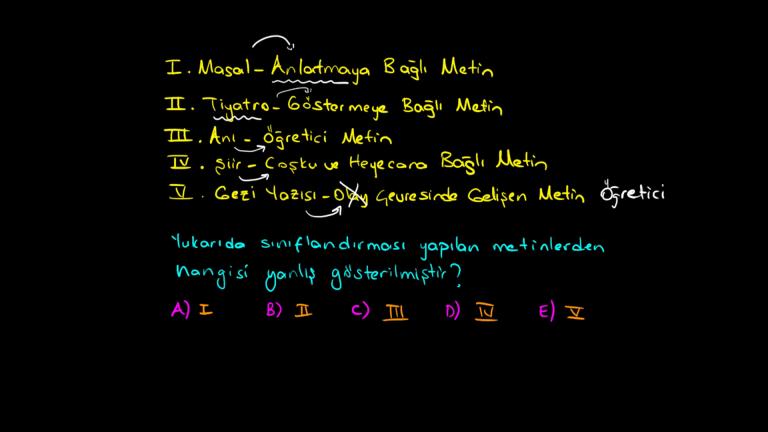 I. Masal - Anlatmaya Bağlı Metin
II. Tiyatro - Göstermeye Bağlı Metin
III. Anı - Öğretici Metin
IV. Şiir - Coşku ve Heyecana Bağlı Metin
V. Gezi Yazısı - Olay Çevresinde Gelişen Metin Öğretici
Yukarıda sınıflandırması yapılan metinlerden
hangisi yanlış gösterilmiştir?
A) I B) II C) III D) IV E) V